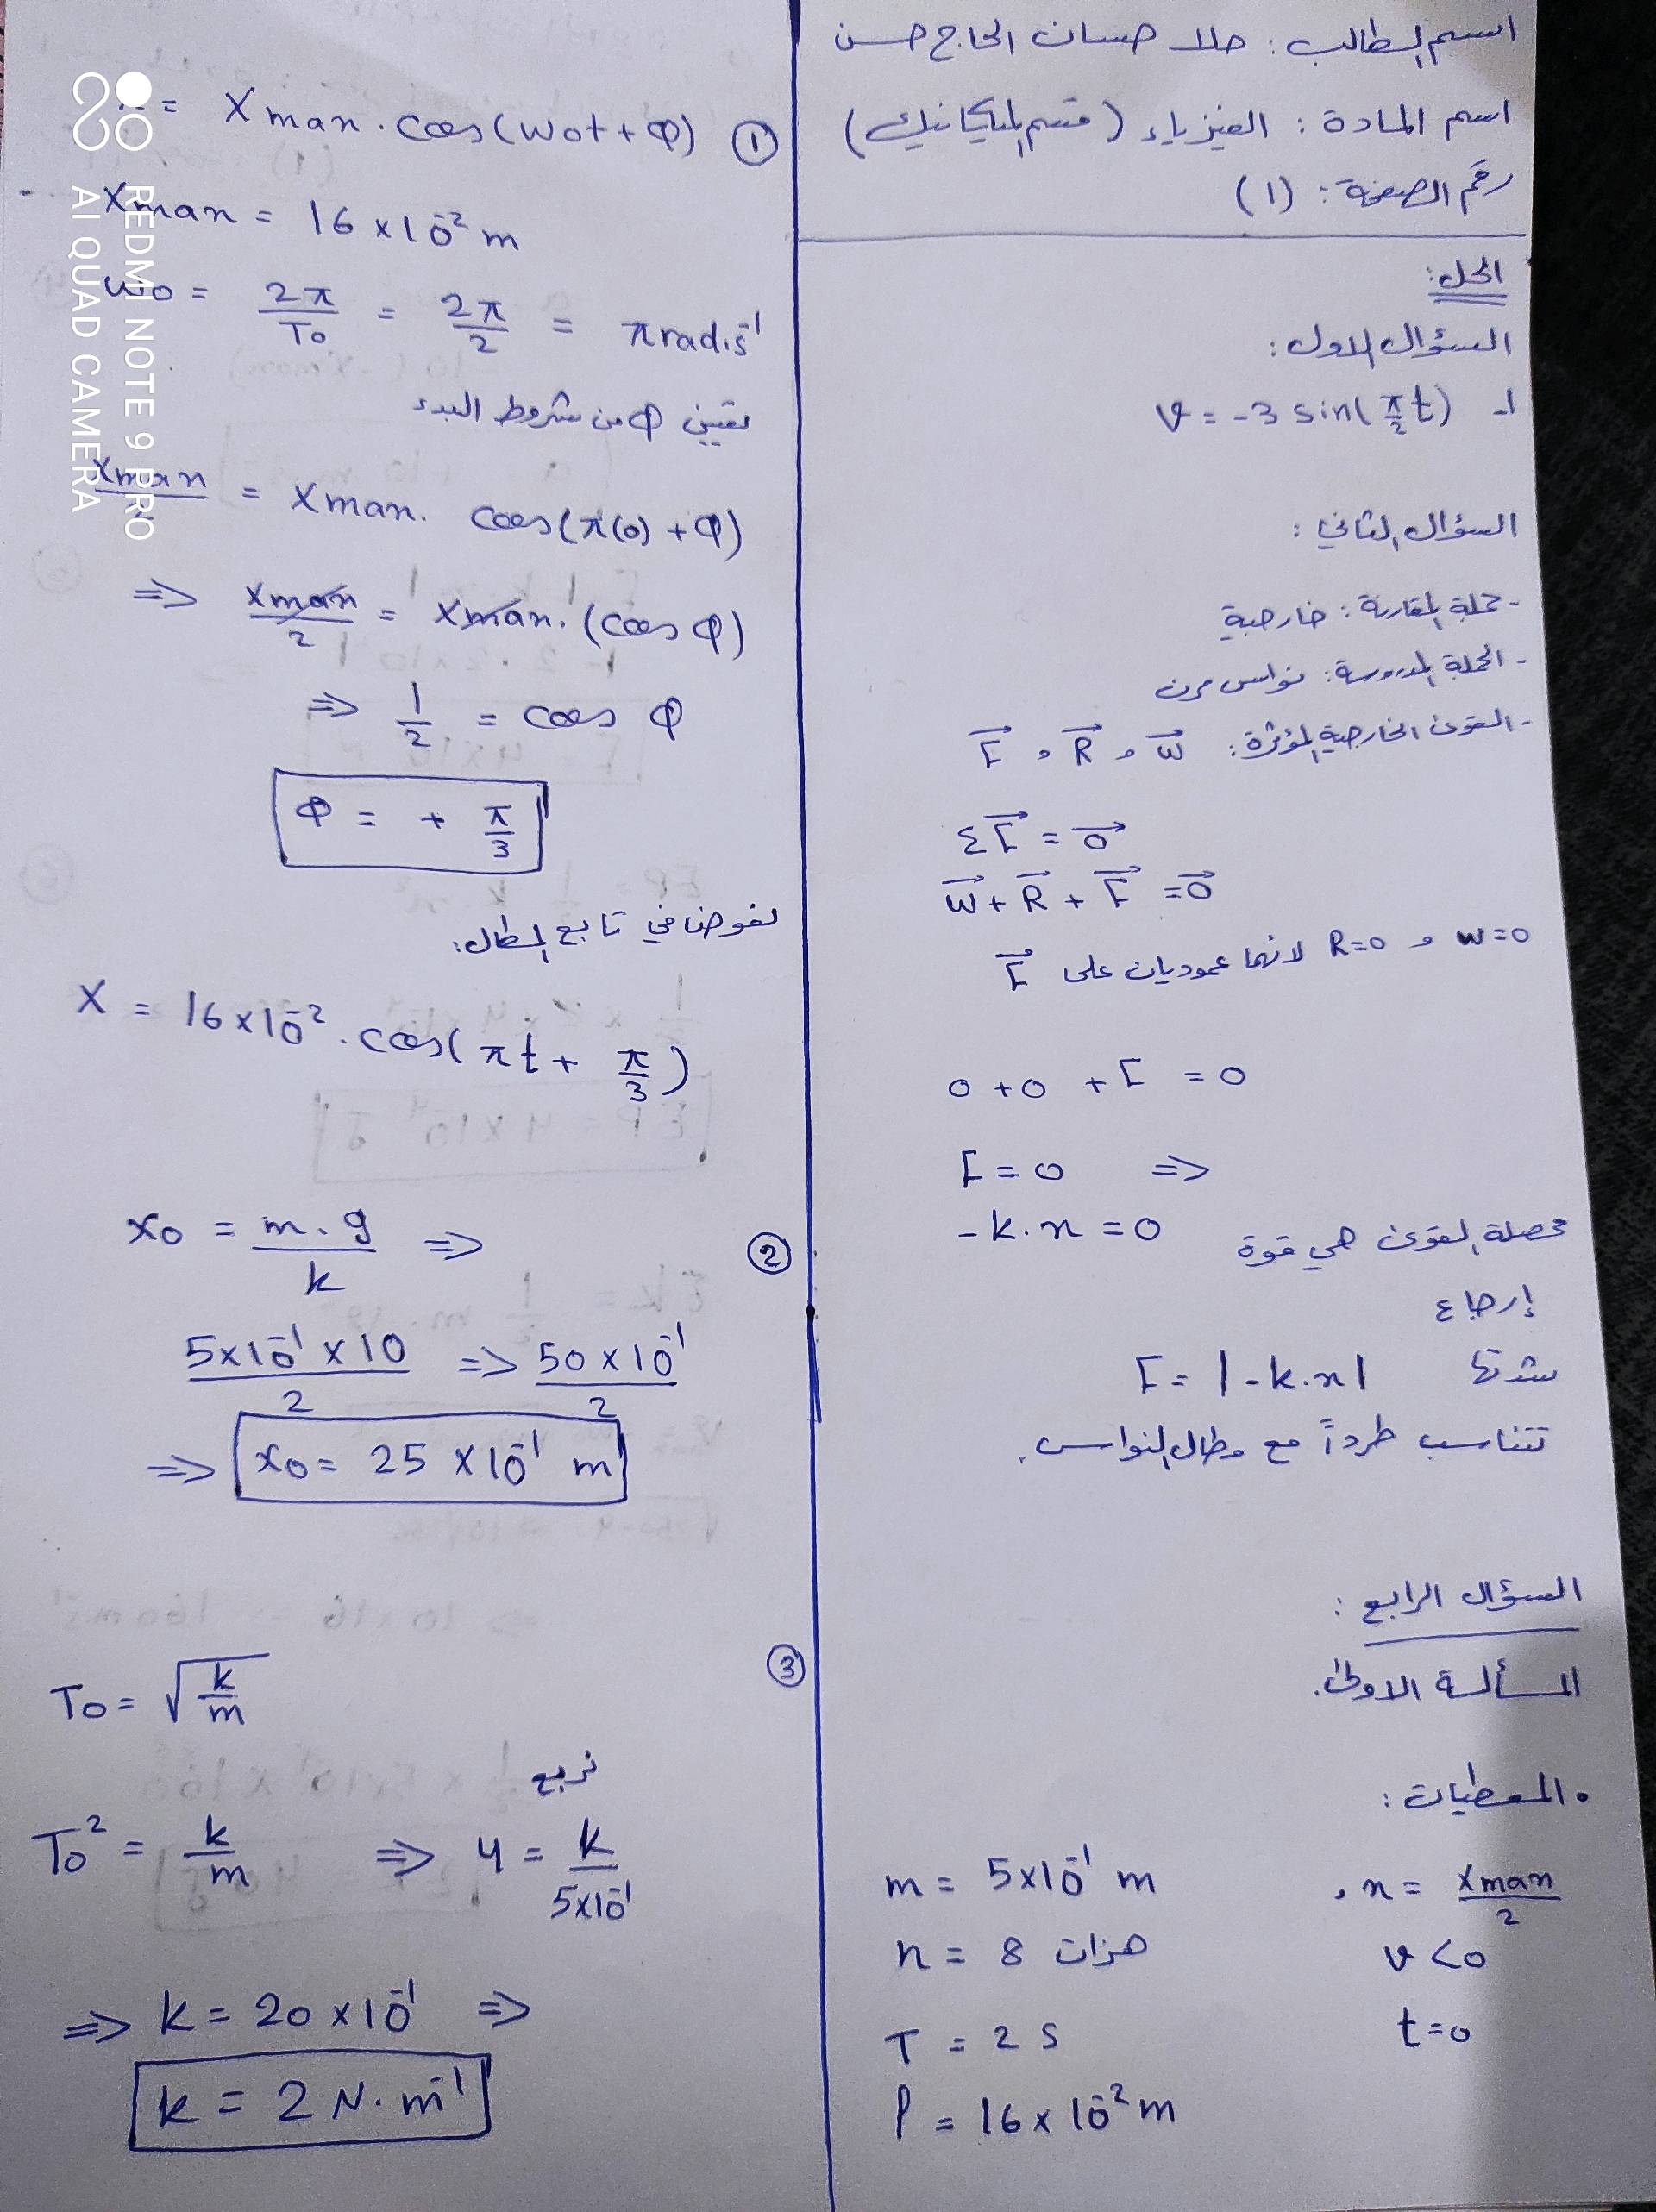 اسم الطالب: حلا حسان الحاج حسن
اسم المادة: الفيزياء (قسم الميكانيك)
رقم الصفحة: (١)
الحل:
السؤال الاول:
1- v = -3 sin(π/2 t)
السؤال الثاني:
- جملة المقارنة: خارجية
- الجملة المدروسة: نواس مرن
- القوى الخارجية المؤثرة: W⃗ , R⃗ , F⃗
ΣF⃗ = 0⃗
W⃗ + R⃗ + F⃗ = 0⃗
W=0 و R=0 لانهما عموديان على F⃗
0 + 0 + F = 0
F = 0 ⇒
-k.x = 0 محصلة القوى هي قوة
إرجاع
شدتها F = |-k.x|
تتناسب طرداً مع مطال النواس.
السؤال الرابع:
المسألة الاولى.
• المعطيات:
m = 5×10⁻¹ m , x = Xmax/2
n = 8 هزات v<0
T = 2 s t=0
l = 16×10⁻² m
① = Xmax . cos(ω0t + φ)
Xmax = 16×10⁻² m
ω0 = 2π/T0 = 2π/2 = π rad.s⁻¹
تعيين φ من شروط البدء
Xmax/2 = Xmax. cos(π(0) + φ)
⇒ Xmax/2 = Xmax. (cos φ)
⇒ 1/2 = cos φ
φ = + π/3
نعوض في تابع المطال:
X = 16×10⁻² . cos(πt + π/3)
② x0 = m.g/k ⇒
5×10⁻¹ × 10/2 ⇒ 50×10⁻¹/2
⇒ x0 = 25 × 10⁻¹ m
③
T0 = √(k/m)
نربع
T0² = k/m ⇒ 4 = k/5×10⁻¹
⇒ k = 20 × 10⁻¹ ⇒
k = 2 N.m⁻¹
REDMI NOTE 9 PRO
AI QUAD CAMERA